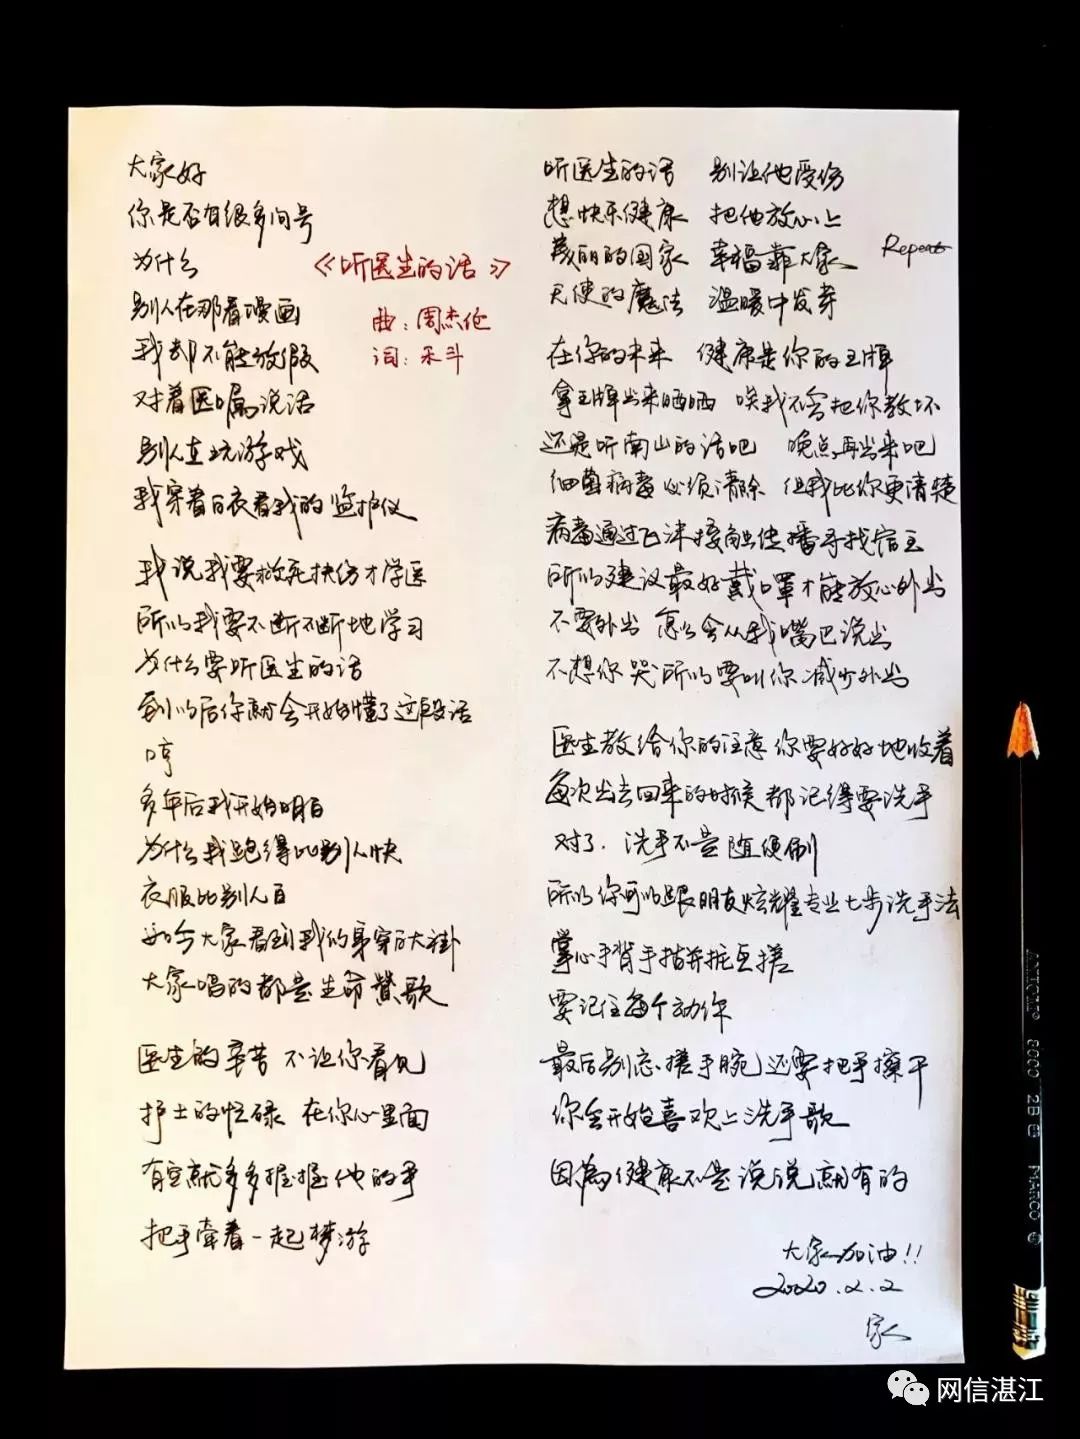 大家好
你是否有很多问号
为什么
《听医生的话》
别人在那看漫画
曲：周杰伦
我却不能放假
词：禾斗
对着医嘱说话
别人在玩游戏
我穿着白衣看我的监护仪
我说我要救死扶伤才学医
所以我要不断不断地学习
为什么要听医生的话
到以后你就会开始懂了这段话
哼
多年后我开始明白
为什么我跑得比别人快
衣服比别人白
如今大家看到我的身穿的大褂
大家唱的都是生命赞歌
医生的辛苦 不让你看见
护士的忙碌 在你心里面
有空就多多握握他的手
把手牵着一起梦游
听医生的话 别让他受伤
想快乐健康 把他放心上
美丽的国家 幸福靠大家
Repeat
天使的魔法 温暖中发芽
在你的未来 健康是你的王牌
拿王牌出来晒晒 唉我不会把你教坏
还是听南山的话吧 晚点再出来吧
细菌病毒必须清除 但我比你更清楚
病毒通过飞沫接触传播寻找宿主
所以建议最好戴口罩才能放心外出
不要外出 怎么会从我嘴巴说出
不想你哭 所以要叫你减少外出
医生教给你的注意你要好好地收着
每次出去回来的时候都记得要洗手
对了，洗手不是随便刷
所以你可以跟朋友炫耀专业七步洗手法
掌心手背手指并拢互搓
要记住每个动作
最后别忘搓手腕 还要把手擦干
你会开始喜欢上洗手歌
因為健康不是说说就有的
大家加油!!
2020.2.2
家
ANTIOLP 8000 2B MARCO
网信湛江